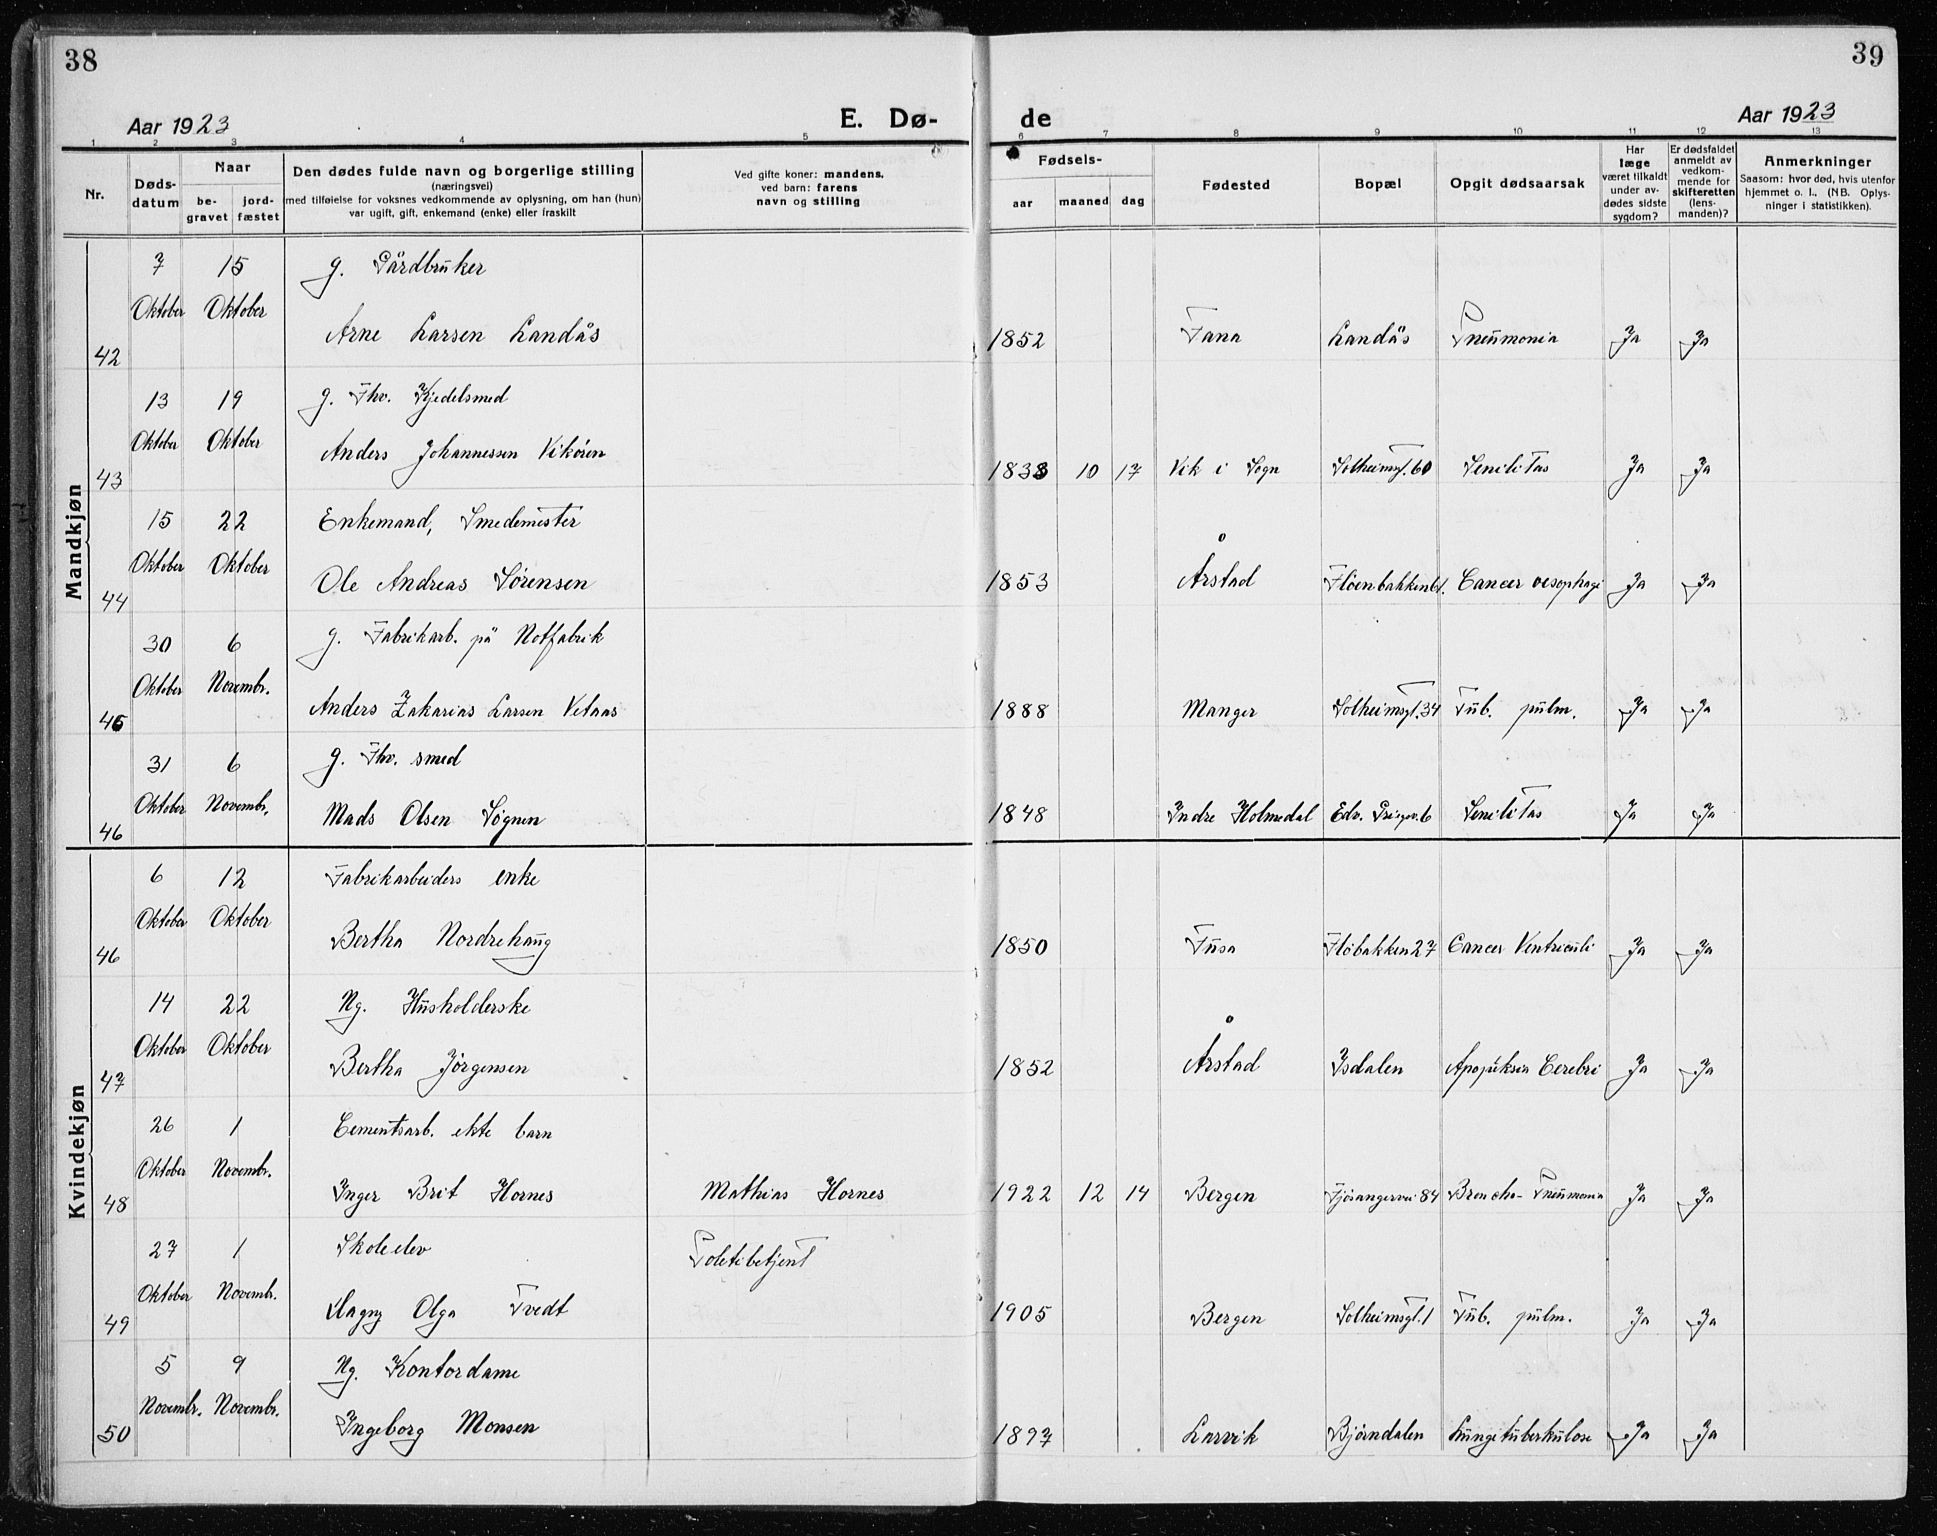 38
39
Aar 1923
E. Dø-
de
Aar 1923
1 2 3 4 5 6 7 8 9 10 11 12 13
Nr.
Døds-
datum
Naar
be-
gravet
jord-
fæstet
Den dødes fulde navn og borgerlige stilling
(næringsvei)
med tilføielse for voksnes vedkommende av oplysning, om han (hun)
var ugift, gift, enkemand (enke) eller fraskilt
Ved gifte koner: mandens,
ved barn: farens
navn og stilling
Fødsels-
aar maaned dag
Fødested
Bopæl
Opgit dødsaarsak
Har
læge
været tilkaldt
under av-
dødes sidste
sygdom?
Er dødsfaldet
anmeldt av
vedkom-
mende for
skifteretten
(lens-
manden)?
Anmerkninger
Saasom: hvor død, hvis utenfor
hjemmet o. l., (NB. Oplys-
ninger i statistikken).
Mandkjøn
7 15 g. Gårdbruker
Oktober Oktober
42 Arne Larsen Landås 1852 Fana Landås Pneumonia Ja Ja
13 19 g. Fhv. Kjedelsmed
Oktober Oktober
43 Anders Johannessen Vikören 1833 10 17 Vik i Sogn Solheimsgt. 60 Senilitas Ja Ja
15 22 Enkemand, Smedemester
Oktober Oktober
44 Ole Andreas Sörensen 1853 Årstad Flöenbakken Cancer oesophagi Ja Ja
30 6 g. Fabrikarb. på Notfabrik
Oktober Novembr.
45 Anders Zakarias Larsen Vetaas 1888 Manger Solheimsgt. 34 Tub. pulm. Ja Ja
31 6 g. Fhv. smed
Oktober Novembr.
46 Mads Olsen Sögnen 1848 Indre Holmedal Edv. Griegsv. 6 Senilitas Ja Ja
Kvindekjøn
6 12 Fabrikarbeiders enke
Oktober Oktober
46 Bertha Nordrehaug 1850 Fusa Flöbakken 27 Cancer Ventriculi Ja Ja
14 22 Ug. Husholderske
Oktober Oktober
47 Bertha Jörgensen 1852 Årstad Isdalen Apopleksia Cerebri Ja Ja
26 1 Cementsarb. ekte barn
Oktober Novembr.
48 Inger Brit Hornes Mathias Hornes 1922 12 14 Bergen Fjösangervei 84 Broncho-Pneumonia Ja Ja
27 1 Skoleelev Poletibetjent
Oktober Novembr.
49 Magny Olga Tvedt 1905 Bergen Solheimsgt. 1 Tub. pulm. Ja Ja
5 9 Ug. Kontordame
Novembr. Novembr.
50 Ingeborg Monsen 1897 Larvik Björndalen Lungetuberkulose Ja Ja